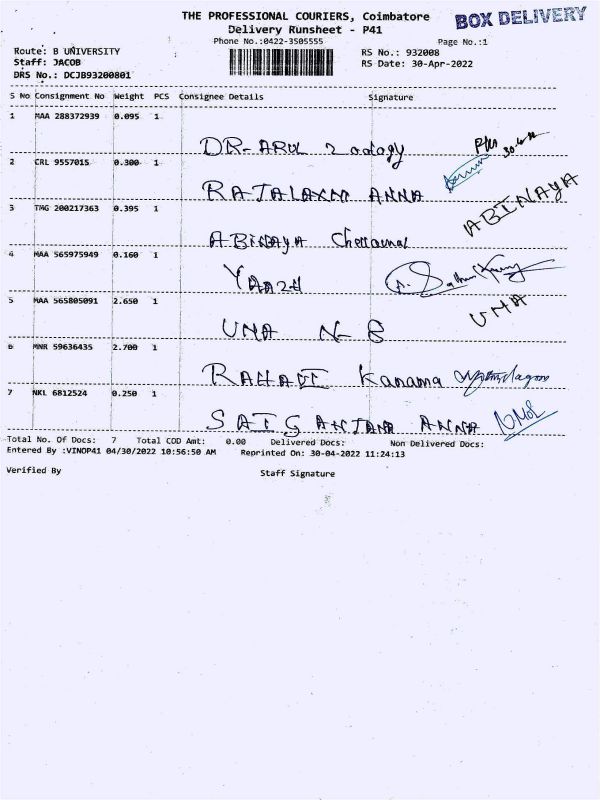 THE PROFESSIONAL COURIERS, Coimbatore
BOX DELIVERY
Delivery Runsheet - P41
Phone No.:0422-3505555
Page No.:1
Route: B UNIVERSITY
RS No.: 932008
Staff: JACOB
RS Date: 30-Apr-2022
DRS No.: DCJB93200801
S No Consignment No Weight PCS Consignee Details Signature
1 MAA 288372939 0.095 1
DR-ARUL Zoology
2 CRL 9557015 0.300 1
RAJALAXMI ANNA
3 TMG 200217363 0.395 1
ABINAYA
ABINAYA
4 MAA 565975949 0.160 1
YAAZH
5 MAA 565805091 2.650 1
UMA
UMA N-B
6 MNR 59636435 2.700 1
Kanama
7 NKL 6812524 0.250 1
ANNA
Total No. Of Docs: 7 Total COD Amt: 0.00 Delivered Docs: Non Delivered Docs:
Entered By :VINOP41 04/30/2022 10:56:50 AM Reprinted On: 30-04-2022 11:24:13
Verified By Staff Signature